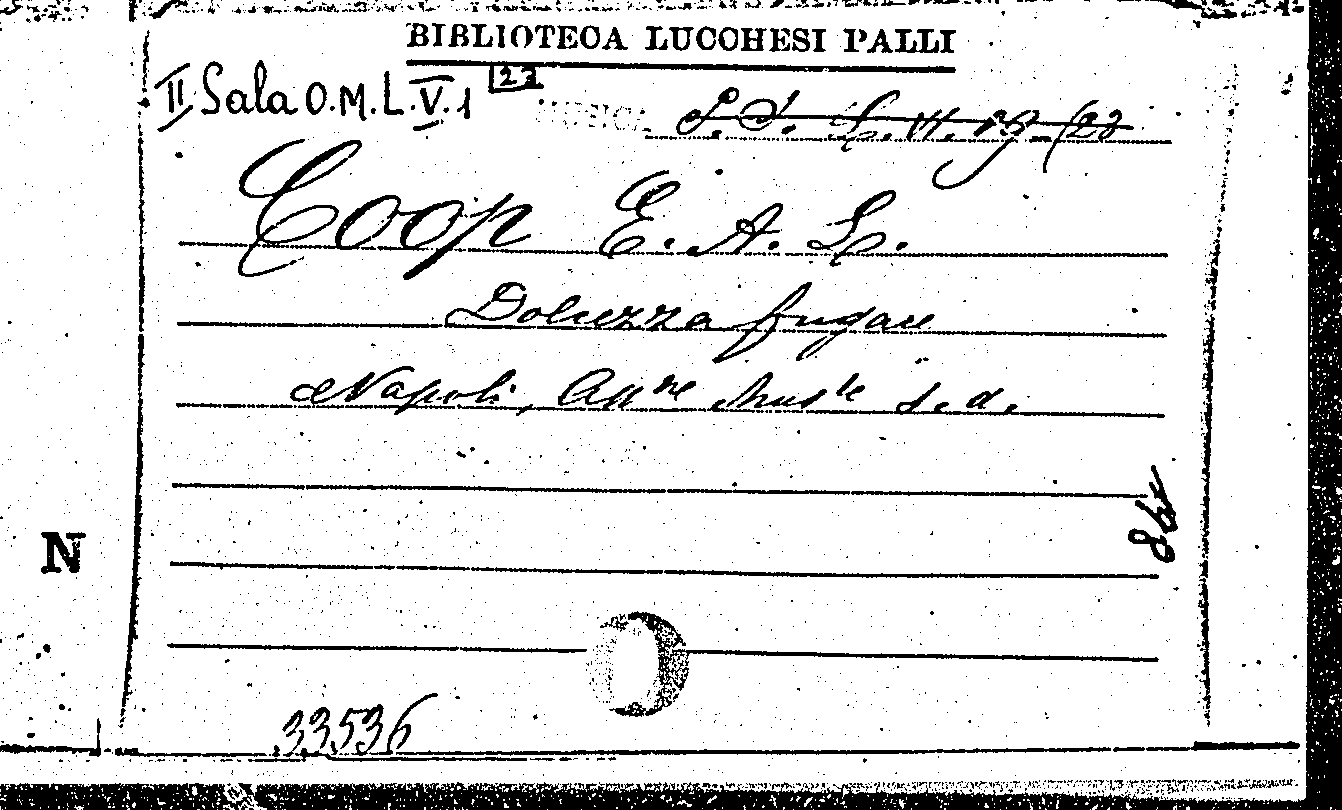 BIBLIOTECA LUCCHESI PALLI
II Sala O.M.L.V.1 23
Coop E. A. L.
Dolcezza fugace
Napoli, App.ne Mus.le s.d.
N
33536